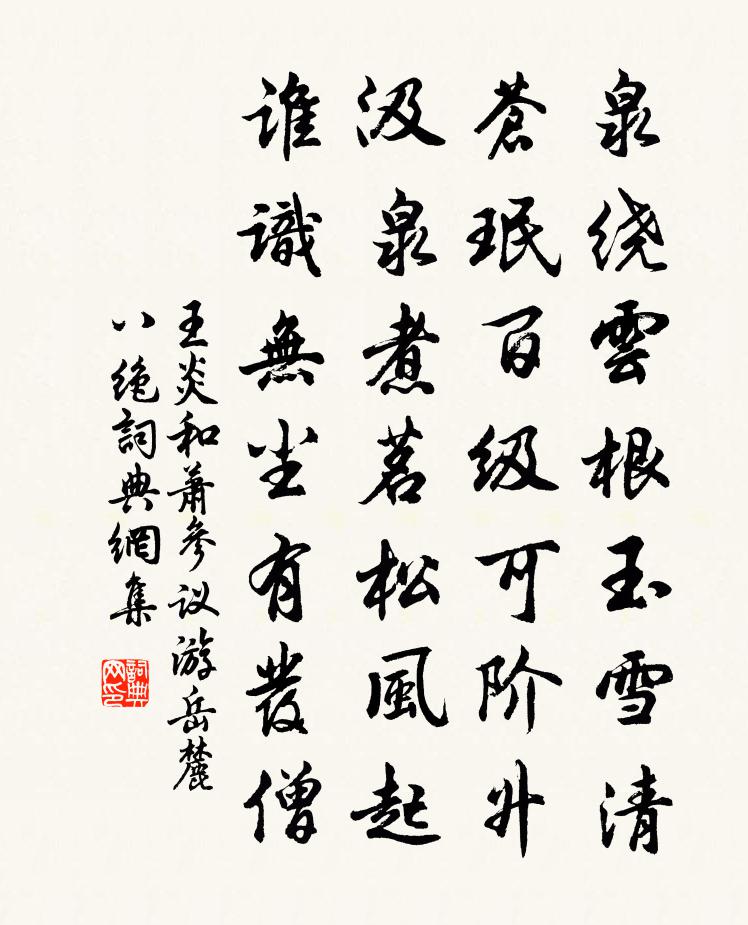 泉绕雲根玉雪清
蒼珉百级可阶升
汲泉煮茗松風起
谁識無尘有发僧
王炎和萧參议游岳麓
八绝詞典網集
詞典网印